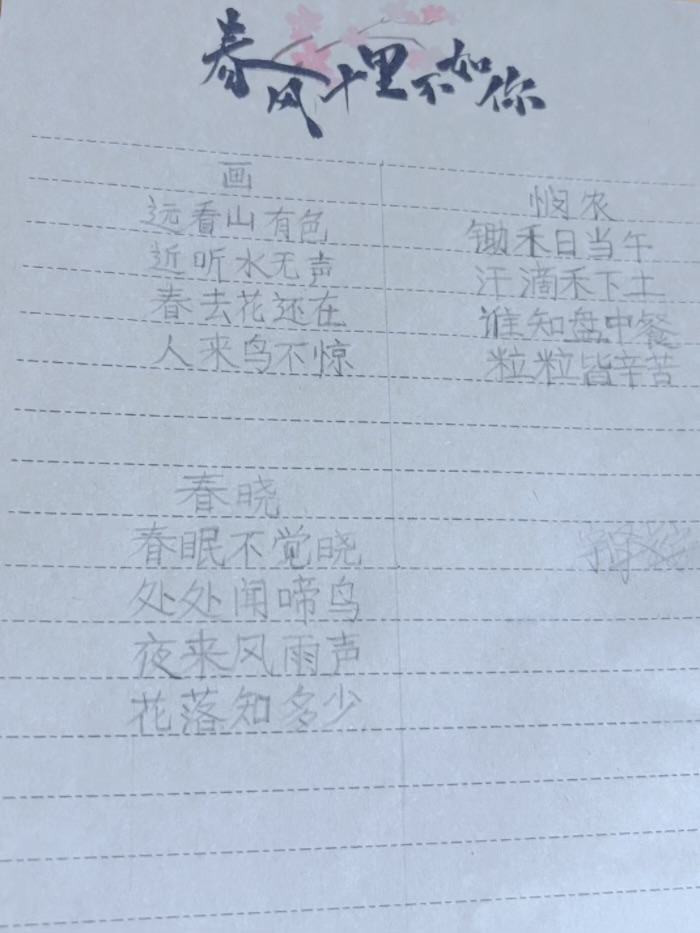 春风十里不如你
画
远看山有色
近听水无声
春去花还在
人来鸟不惊
悯农
锄禾日当午
汗滴禾下土
谁知盘中餐
粒粒皆辛苦
春晓
春眠不觉晓
处处闻啼鸟
夜来风雨声
花落知多少